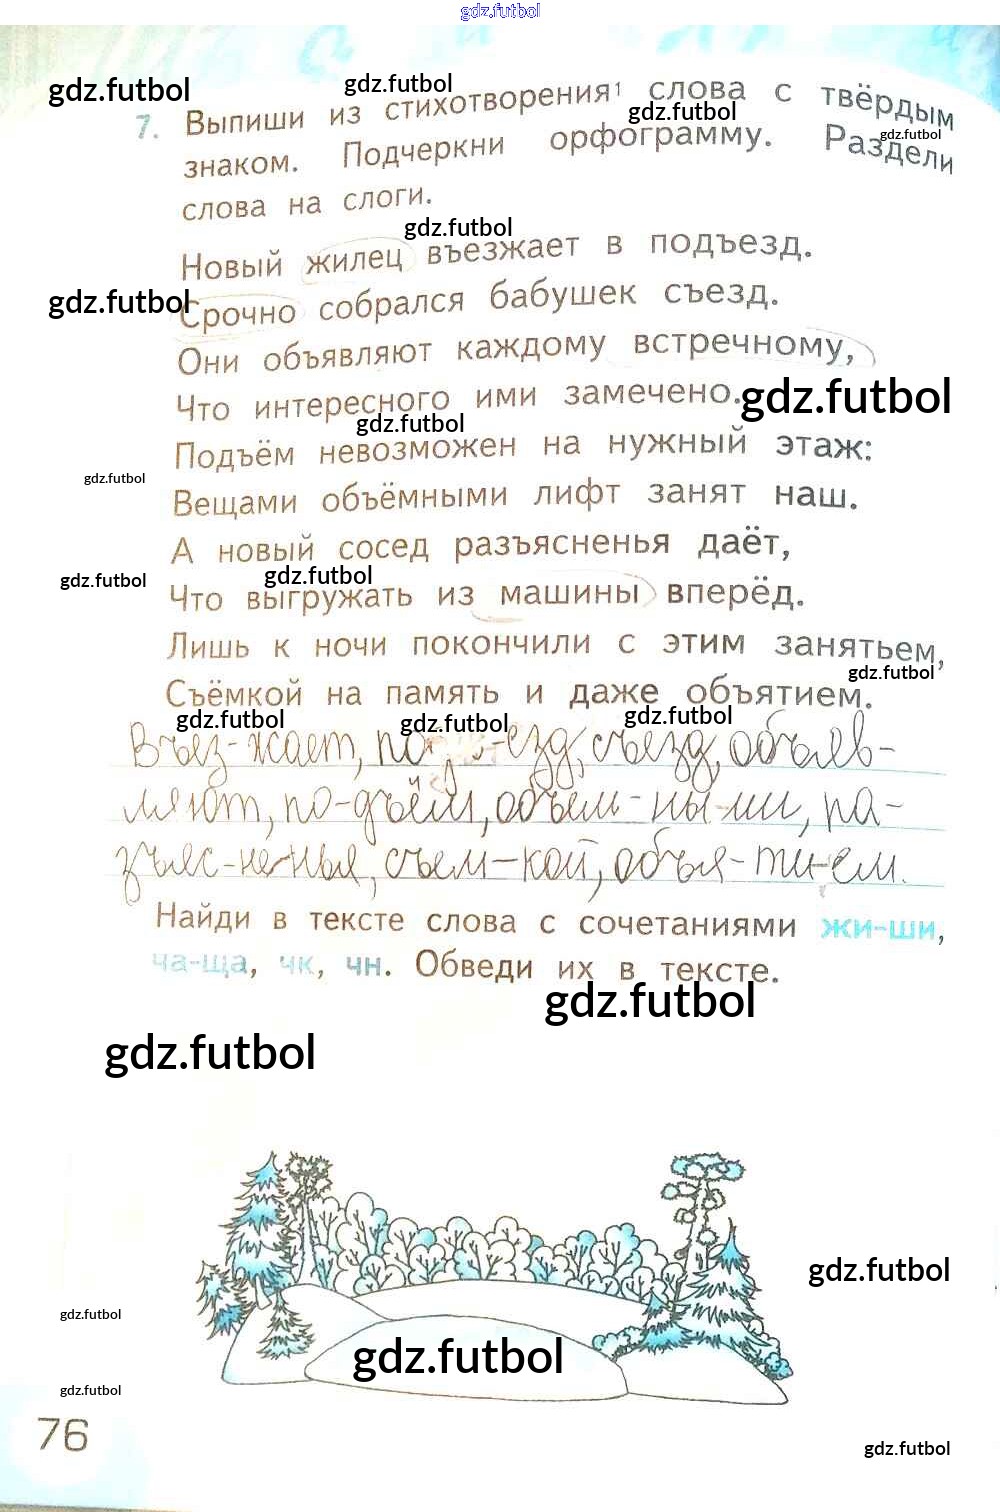 gdz.futbol
gdz.futbol
gdz.futbol
7. Выпиши из стихотворения¹ слова с твёрдым
gdz.futbol
gdz.futbol
знаком. Подчеркни орфограмму. Раздели
слова на слоги.
gdz.futbol
Новый жилец въезжает в подъезд.
gdz.futbol
Срочно собрался бабушек съезд.
Они объявляют каждому встречному,
Что интересного ими замечено.
gdz.futbol
gdz.futbol
Подъём невозможен на нужный этаж:
gdz.futbol
Вещами объёмными лифт занят наш.
А новый сосед разъясненья даёт,
gdz.futbol
gdz.futbol
Что выгружать из машины вперёд.
Лишь к ночи покончили с этим занятьем,
gdz.futbol
Съёмкой на память и даже объятием.
gdz.futbol
gdz.futbol
gdz.futbol
Въез-жает, по -езд, съезд, объяв-
ляют, по-дъём, объём-ны-ми, ра-
зъяс-не-нья, съем-кой, объя-ти-ем.
Найди в тексте слова с сочетаниями жи-ши,
ча-ща, чк, чн. Обведи их в тексте.
gdz.futbol
gdz.futbol
gdz.futbol
gdz.futbol
gdz.futbol
gdz.futbol
76
gdz.futbol